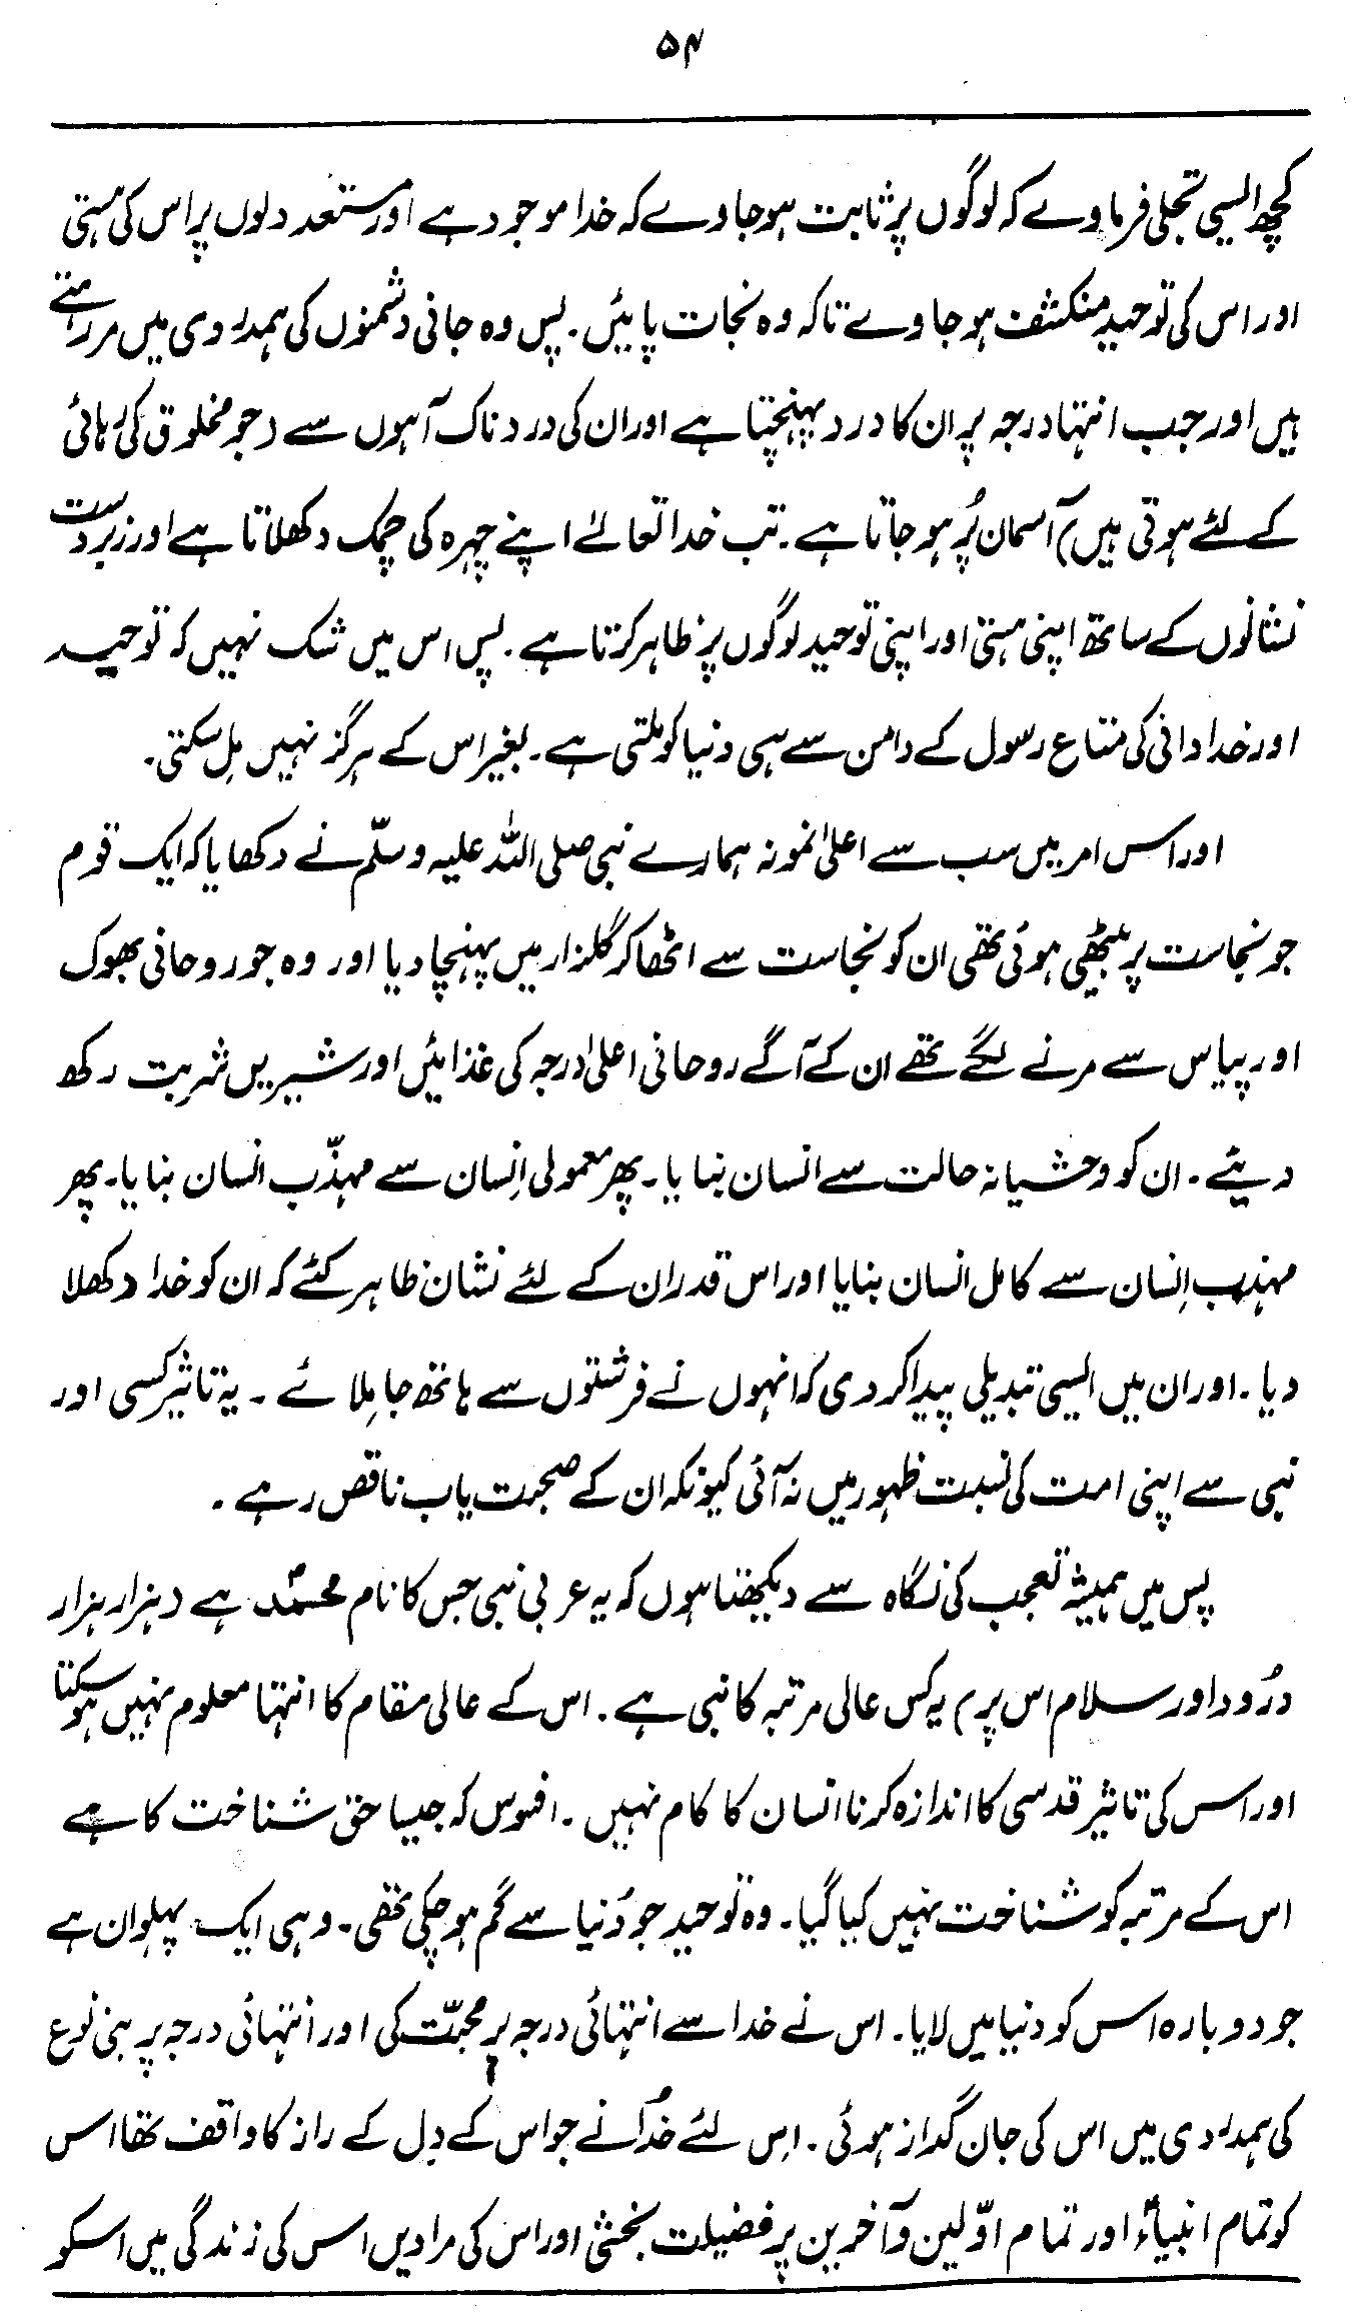 ۵۴
کچھ ایسی تجلی فرماوے کہ لوگوں پر ثابت ہو جاوے کہ خدا موجود ہے اور مستعد دلوں پر اس کی ہستی
اور اس کی توحید منکشف ہو جاوے تاکہ وہ نجات پائیں۔ پس وہ جانی دشمنوں کی ہمدردی میں مر رہتے
ہیں اور جب انتہا درجہ پر ان کا درد پہنچتا ہے اور ان کی دردناک آہوں سے (جو مخلوق کی رہائی
کے لئے ہوتی ہیں) آسمان پُر ہو جاتا ہے۔ تب خدا تعالےٰ اپنے چہرہ کی چمک دکھلاتا ہے اور زبردست
نشانوں کے ساتھ اپنی ہستی اور اپنی توحید لوگوں پر ظاہر کرتا ہے۔ پس اس میں شک نہیں کہ توحید
اور خدا دانی کی متاع رسول کے دامن سے ہی دنیا کو ملتی ہے۔ بغیر اس کے ہرگز نہیں مِل سکتی۔
اور اس امر میں سب سے اعلیٰ نمونہ ہمارے نبی صلی اللہ علیہ وسلّم نے دکھایا کہ ایک قوم
جو نجاست پر بیٹھی ہوئی تھی ان کو نجاست سے اٹھا کر گلزار میں پہنچا دیا اور وہ جو روحانی بھوک
اور پیاس سے مرنے لگے تھے ان کے آگے روحانی اعلیٰ درجہ کی غذائیں اور شیریں شربت رکھ
دیئے۔ ان کو وحشیانہ حالت سے انسان بنایا۔ پھر معمولی اِنسان سے مہذّب انسان بنایا۔ پھر
مہذب اِنسان سے کامل انسان بنایا اور اس قدر ان کے لئے نشان ظاہر کئے کہ ان کو خدا دکھلا
دیا۔ اور ان میں ایسی تبدیلی پیدا کر دی کہ انہوں نے فرشتوں سے ہاتھ جا مِلائے۔ یہ تاثیر کسی اور
نبی سے اپنی امت کی نسبت ظہور میں نہ آئی کیونکہ ان کے صحبت یاب ناقص رہے۔
پس میں ہمیشہ تعجب کی نگاہ سے دیکھتا ہوں کہ یہ عربی نبی جس کا نام محمدؐ ہے (ہزار ہزار
دُرود اور سلام اس پر) یہ کس عالی مرتبہ کا نبی ہے۔ اس کے عالی مقام کا انتہا معلوم نہیں ہو سکتا
اور اس کی تاثیر قدسی کا اندازہ کرنا انسان کا کام نہیں۔ افسوس کہ جیسا حق شناخت کا ہے
اس کے مرتبہ کو شناخت نہیں کیا گیا۔ وہ توحید جو دُنیا سے گم ہو چکی تھی۔ وہی ایک پہلوان ہے
جو دوبارہ اس کو دنیا میں لایا۔ اس نے خدا سے انتہائی درجہ پر محبّت کی اور انتہائی درجہ پر بنی نوع
کی ہمدردی میں اس کی جان گداز ہوئی۔ اِس لئے خُدا نے جو اس کے دِل کے راز کا واقف تھا اس
کو تمام انبیاؑء اور تمام اوّلین و آخرین پر فضیلت بخشی اور اس کی مرادیں اس کی زندگی میں اسکو